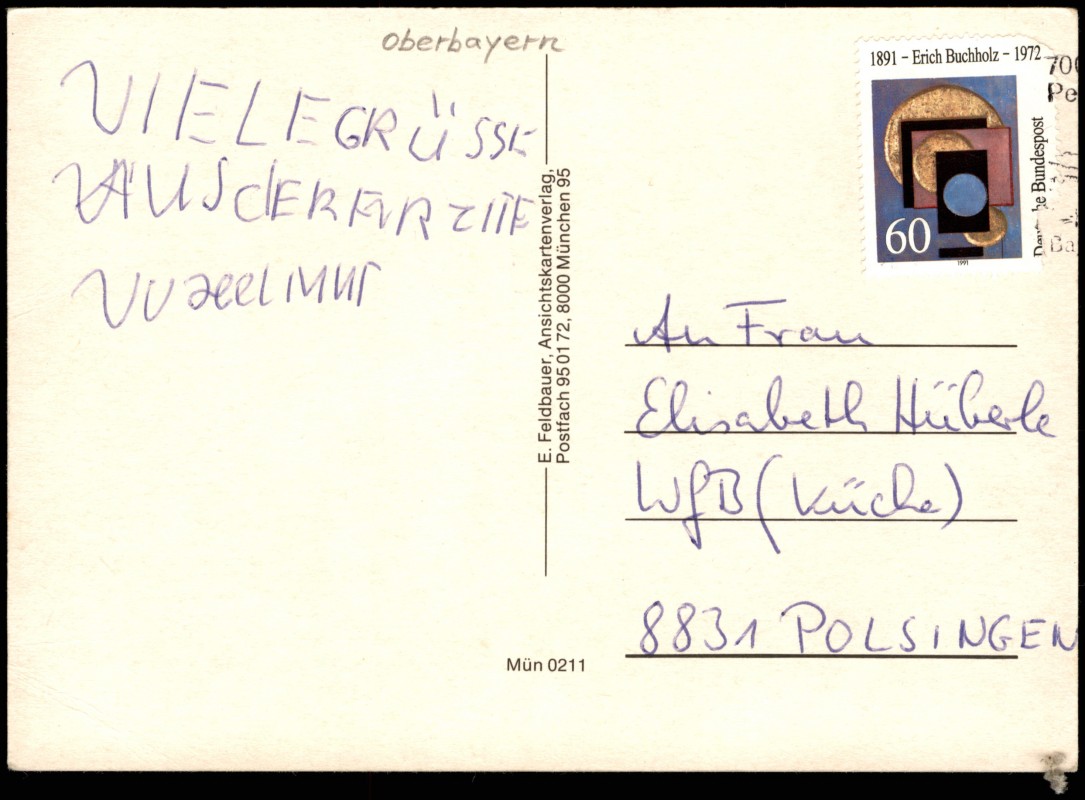 oberbayern
VIELE GRÜSSE
AUS dER
E. Feldbauer, Ansichtskartenverlag,
Postfach 95 01 72, 8000 München 95
Mün 0211
1891 – Erich Buchholz – 1972
Deutsche Bundespost
60
1991
700
Pe
Ba
An Frau
Elisabeth Hüberle
WfB (Küche)
8831 POLSINGEN